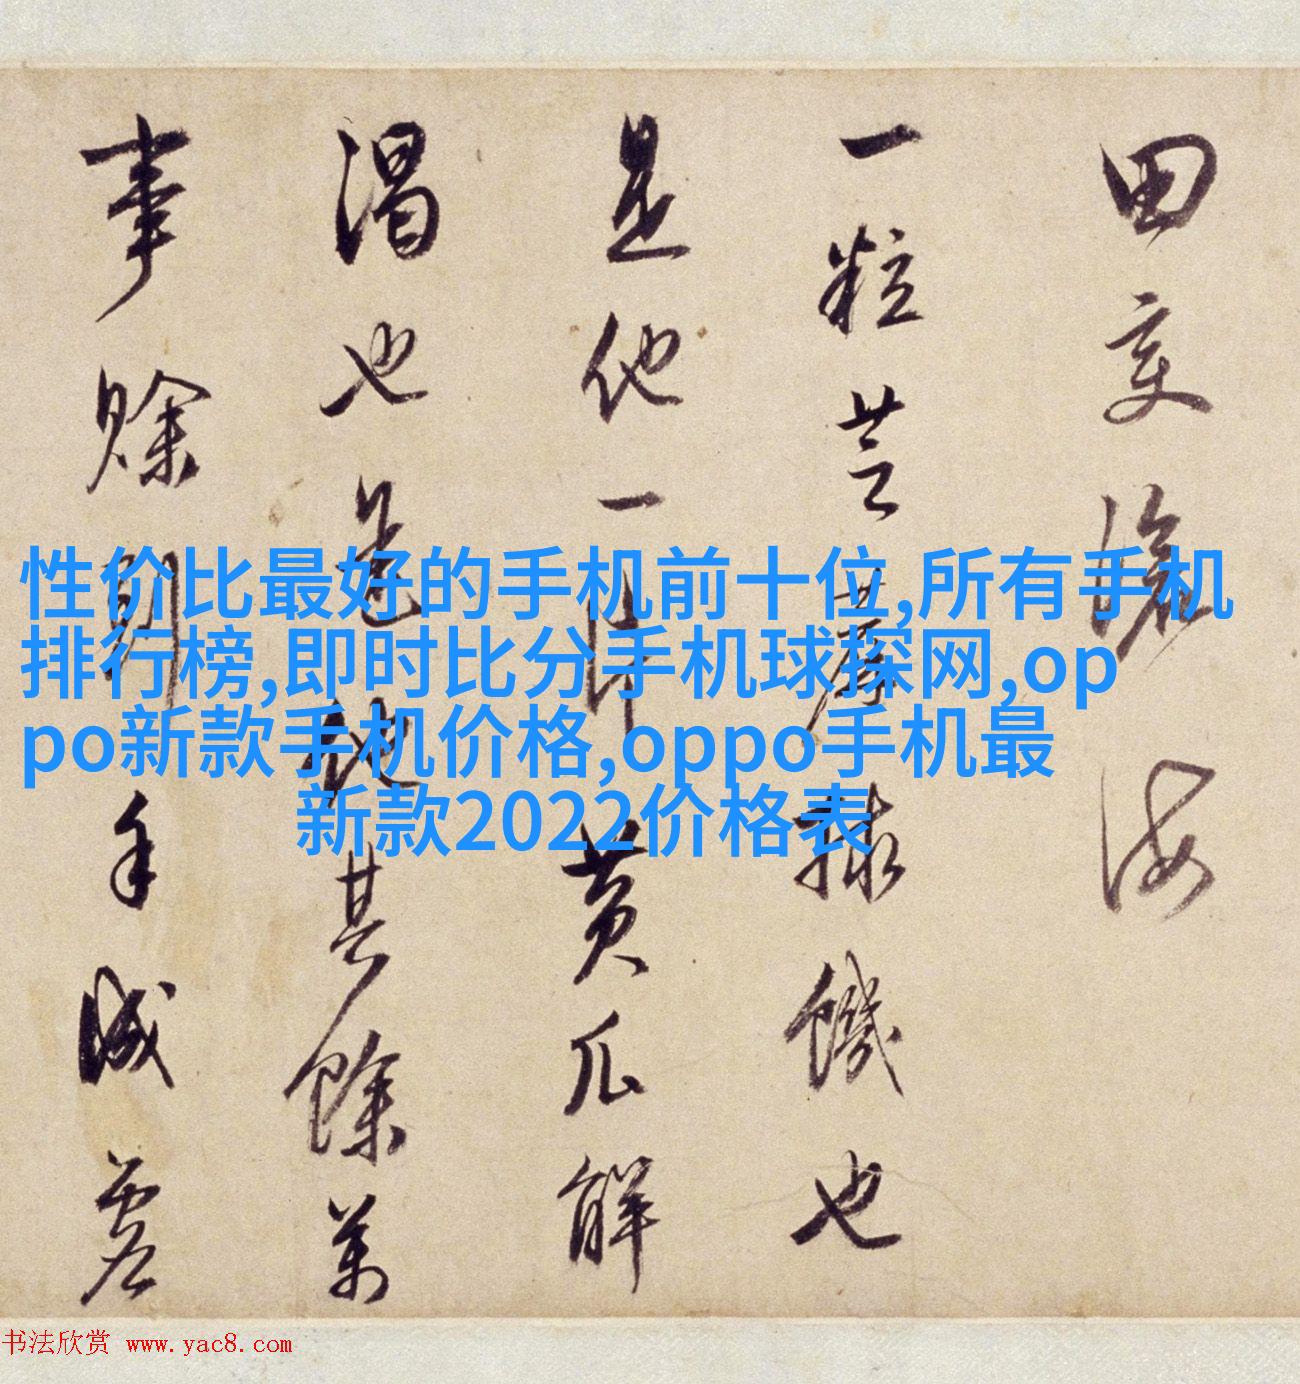 田变滄海
一粒芝麻捄饑也
是他一片黄瓜解
渴也是他其餘萬
事賒手
性价比最好的手机前十位,所有手机
排行榜,即时比分手机球探网,op
po新款手机价格,oppo手机最
新款2022价格表
书法欣赏 www.yac8.com